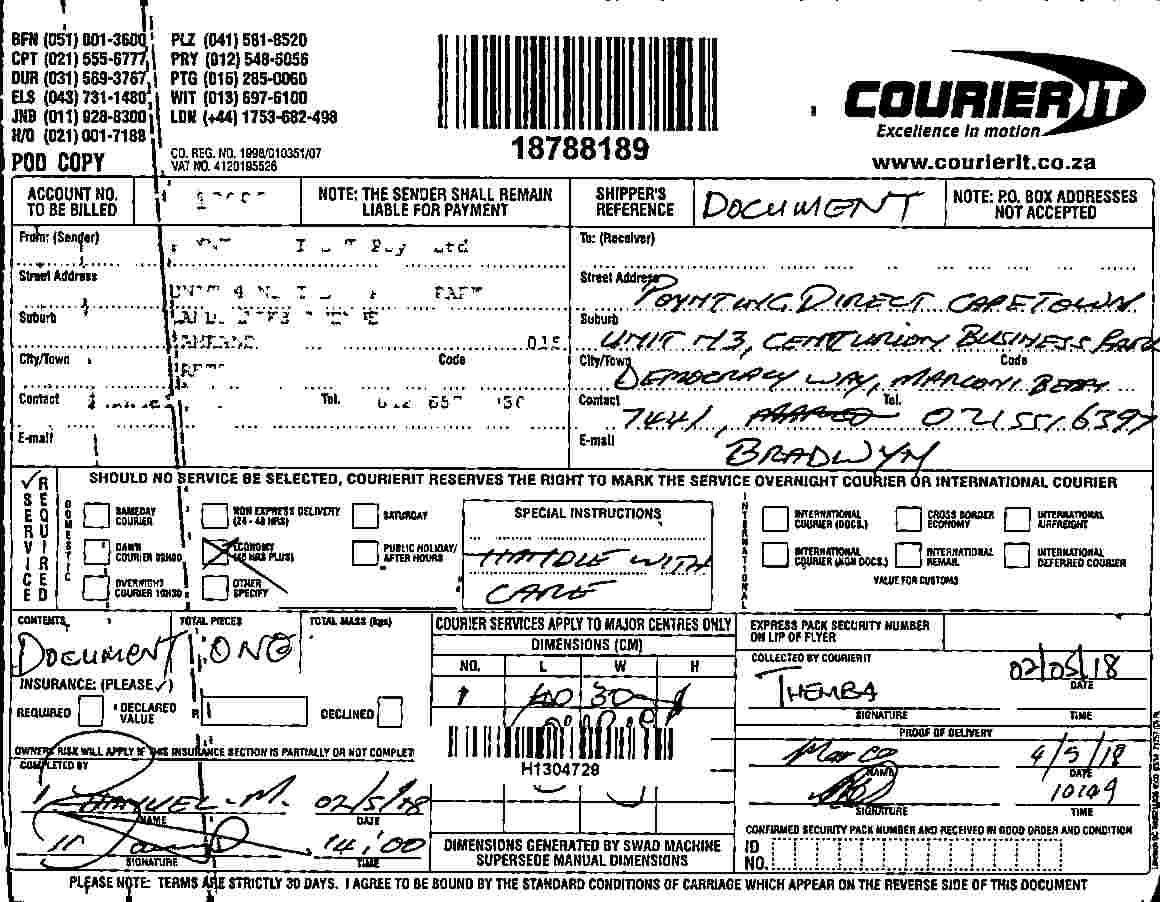 BFN (051) 001-3600 PLZ (041) 581-8520
CPT (021) 555-6777 PRY (012) 548-5056
DUR (031) 569-3767 PTG (016) 285-0060
ELS (043) 731-1480 WIT (013) 697-6100
JNB (011) 928-8300 LDN (+44) 1753-682-498
H/O (021) 001-7188
POD COPY
CO. REG. NO. 1998/010351/07
VAT NO. 4120195526
18788189
COURIER IT
Excellence in motion
www.courierit.co.za
ACCOUNT NO. TO BE BILLED
NOTE: THE SENDER SHALL REMAIN LIABLE FOR PAYMENT
SHIPPER'S REFERENCE
DOCUMENT
NOTE: P.O. BOX ADDRESSES NOT ACCEPTED
From: (Sender)
Pty Ltd
Street Address
Suburb
City/Town Code
Contact Tel.
E-mail
To: (Receiver)
Street Address
POYNTING DIRECT CAPETOWN
Suburb
UNIT H3, CENTURION BUSINESS PARK
City/Town Code
DEMOCRACY WAY, MARCONI BEAM
Contact Tel.
7441, 0215516397
E-mail
BRADWYN
SERVICE REQUIRED
SHOULD NO SERVICE BE SELECTED, COURIERIT RESERVES THE RIGHT TO MARK THE SERVICE OVERNIGHT COURIER OR INTERNATIONAL COURIER
DOMESTIC
SAMEDAY COURIER
NON EXPRESS DELIVERY (24 - 48 HRS)
SATURDAY
DAWN COURIER 09H00
ECONOMY (48 HRS PLUS)
PUBLIC HOLIDAY/ AFTER HOURS
OVERNIGHT COURIER 10H30
OTHER SPECIFY
SPECIAL INSTRUCTIONS
HANDLE WITH
CARE
INTERNATIONAL
INTERNATIONAL COURIER (DOCS.)
CROSS BORDER ECONOMY
INTERNATIONAL AIRFREIGHT
INTERNATIONAL COURIER (NON DOCS.)
INTERNATIONAL REMAIL
INTERNATIONAL DEFERRED COURIER
VALUE FOR CUSTOMS
CONTENTS
DOCUMENT
TOTAL PIECES
ONE
TOTAL MASS (kgs)
INSURANCE: (PLEASE ✓)
REQUIRED
DECLARED VALUE R
DECLINED
OWNERS RISK WILL APPLY IF THIS INSURANCE SECTION IS PARTIALLY OR NOT COMPLET
COMPLETED BY
EMANUEL.M. 02/5/18
NAME DATE
14:00
SIGNATURE TIME
COURIER SERVICES APPLY TO MAJOR CENTRES ONLY
DIMENSIONS (CM)
NO. L W H
1 40 30 1
H1304729
DIMENSIONS GENERATED BY SWAD MACHINE SUPERSEDE MANUAL DIMENSIONS
EXPRESS PACK SECURITY NUMBER ON LIP OF FLYER
COLLECTED BY COURIERIT
THEMBA 02/05/18
DATE
SIGNATURE TIME
PROOF OF DELIVERY
Marco 4/5/18
NAME DATE
10:09
SIGNATURE TIME
CONFIRMED SECURITY PACK NUMBER AND RECEIVED IN GOOD ORDER AND CONDITION
ID NO.
PLEASE NOTE: TERMS ARE STRICTLY 30 DAYS. I AGREE TO BE BOUND BY THE STANDARD CONDITIONS OF CARRIAGE WHICH APPEAR ON THE REVERSE SIDE OF THIS DOCUMENT